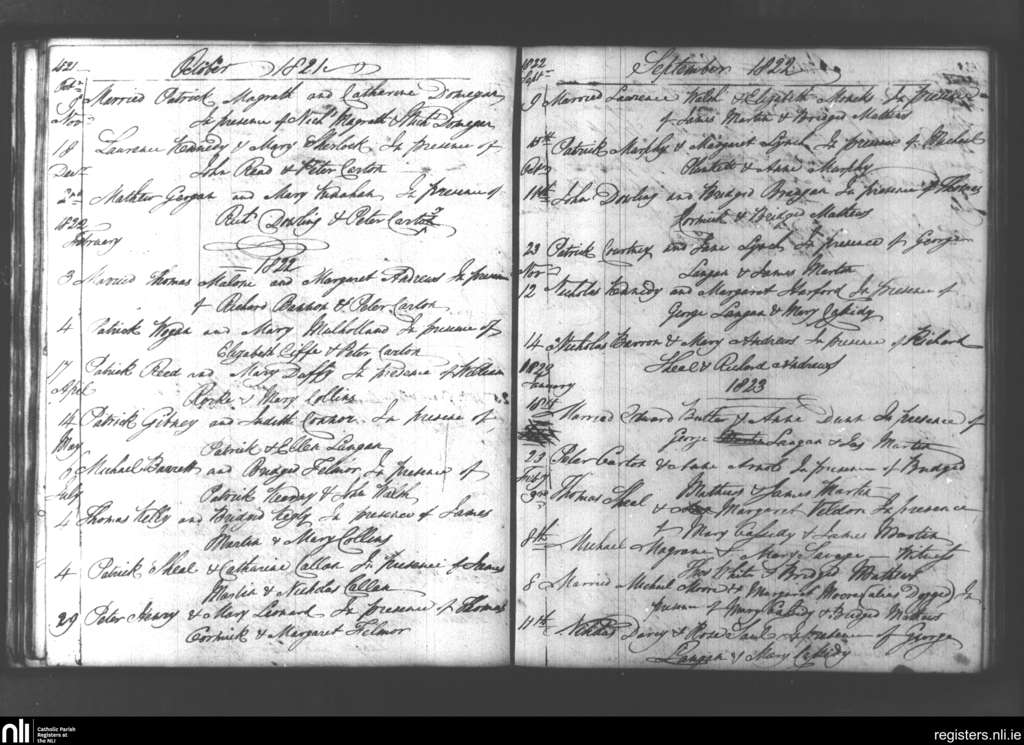 421 October 1821
9 Married Patrick Magrath and Catherine Donegan
Novr In presence of Nichs Magrath & Donegan
18 Laurence Kennedy & Mary Sherlock In presence of
Decr John Read & Peter Carton
2nd Mathew Geogan and Mary In presence of
1822 Richd Dowling & Peter Carton
February
1822
3 Married Thomas Malone and Margaret Andrews In presence
of Richard & Peter Carton
4 Patrick Hogan and Mary Mulholland In presence of
Elizabeth Ciffe & Peter Carton
17 Patrick Reed and Mary Duffy In presence of William
April Rorke & Mary Collins
14 Patrick Gibney and Judith Connor In presence of
May Patrick & Ellen Langan
6 Michael Barrett and Bridged Felmor In presence of
July Patrick Kearny & John Walsh
4 Thomas Kelly and Bridged In presence of James
Martin & Mary Collins
4 Patrick Sheal & Catharine Callan In presence of James
Martin & Nicholas Callan
29 Peter Henry & Mary Leonard In presence of Thomas
Cormick & Margaret Felmor
1822 September 1822
Septr
9 Married Laurence Walsh & Elizabeth Monks In presence
of James Martin & Bridged Mathews
15th Patrick Murphy & Margaret Lynch In presence of Michael
Octr Plunkett & Anne Murphy
11th John Dowling and Bridged Brangan In presence of Thomas
Cormick & Bridged Mathews
23 Patrick Courtney and Jane Lynch In presence of George
Novr Langan & James Martin
12 Nicholas Kennedy and Margaret Harford In presence of
George Langan & Mary Cassidy
14 Nicholas Barron & Mary Andrews In presence of Richard
1823 Sheal & Richard Andrews
January 1823
18th Married Edward Butler & Anne Dunn In presence of
George Langan & Jas Martin
23 Peter Carton & Jane In presence of Bridged
Feby Mathews & James Martin
3rd Thomas Sheal & Margaret Weldon In presence
of Mary Cassidy & James Martin
8th Michael Magrane & Mary Savage Witness
Thos White & Bridged Mathews
8 Married Michael Moore & Margaret Moore alias Dogged In
presence of Mary Cassidy & Bridged Mathews
11th Nicholas Darcy & Rose Saul In presence of George
Langan & Mary Cassidy
nli Catholic Parish
Registers at
the NLI
registers.nli.ie